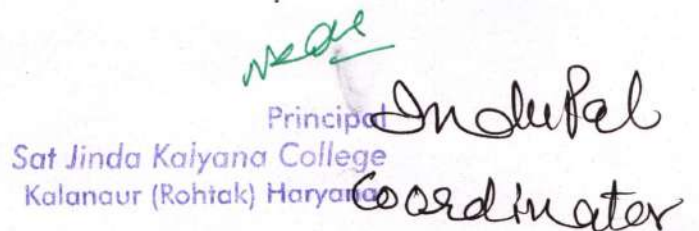 Principal
Sat Jinda Kalyana College
Kalanaur (Rohtak) Haryana
InduPal
Coordinator